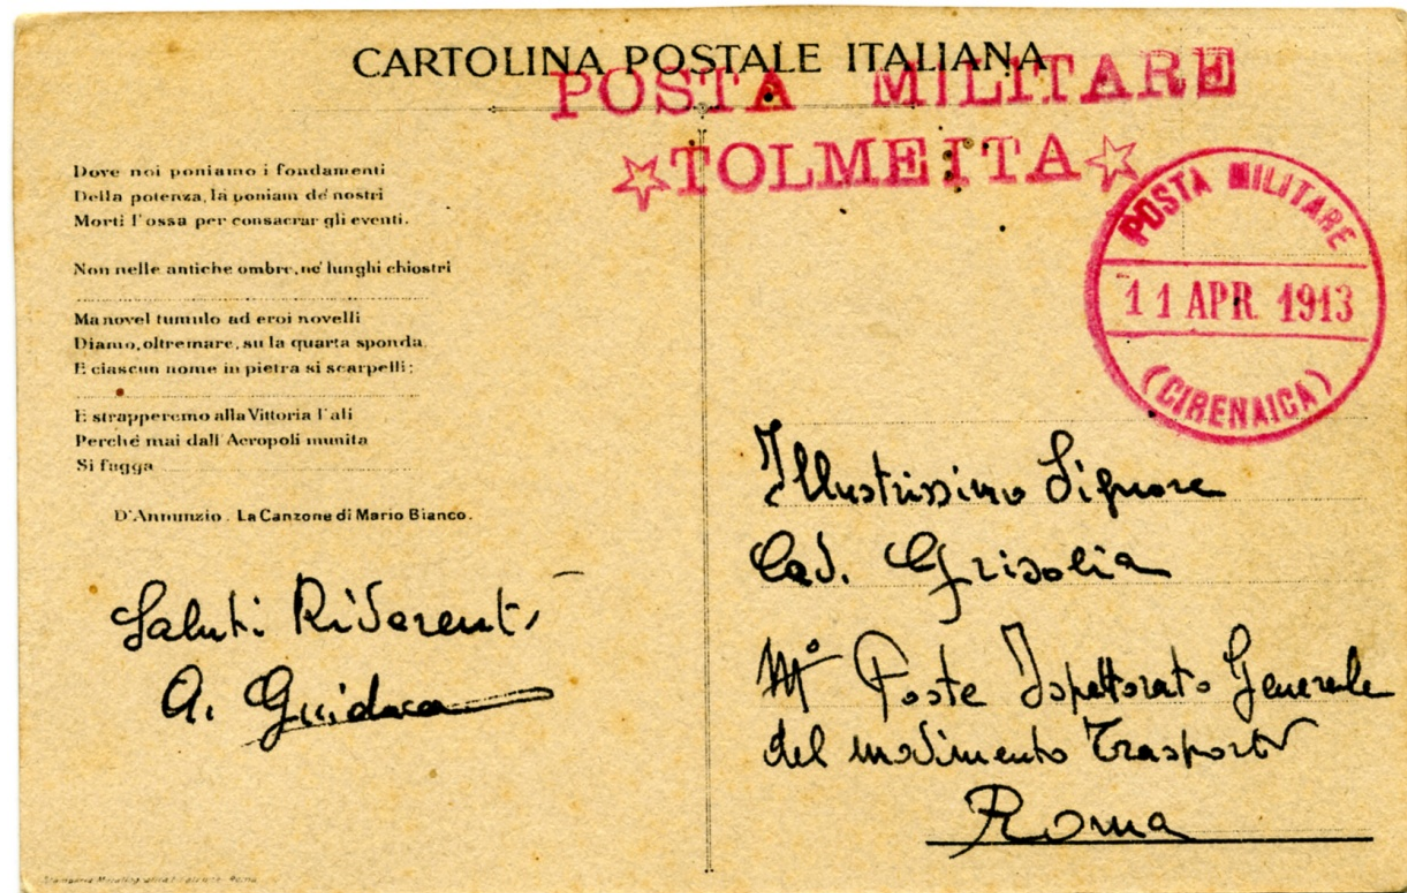 CARTOLINA POSTALE ITALIANA
POSTA MILITARE
☆TOLMEITA☆
POSTA MILITARE
11 APR. 1913
(CIRENAICA)
Dove noi poniamo i fondamenti
Della potenza, là poniam de' nostri
Morti l'ossa per consacrar gli eventi.
Non nelle antiche ombre, ne' lunghi chiostri
Ma novel tumulo ad eroi novelli
Diamo, oltremare, su la quarta sponda.
E ciascun nome in pietra si scarpelli;
E strapperemo alla Vittoria l'ali
Perché mai dall'Acropoli munita
Si fugga
D'Annunzio. La Canzone di Mario Bianco.
Saluti Riverenti
A.
Illustrissimo Signore
Cav. Grisolia
Mº Poste Ispettorato Generale
del movimento Trasporti
Roma